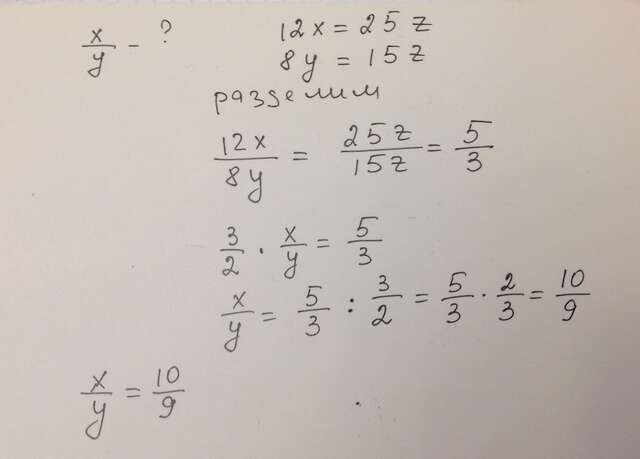 x/y - ? 12x = 25z
8y = 15z
разделим
12x/8y = 25z/15z = 5/3
3/2 · x/y = 5/3
x/y = 5/3 : 3/2 = 5/3 · 2/3 = 10/9
x/y = 10/9